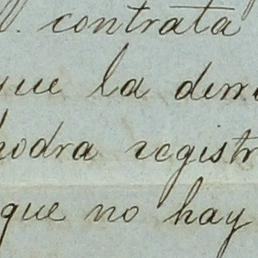 . contrata
que la
podra registr
que no hay